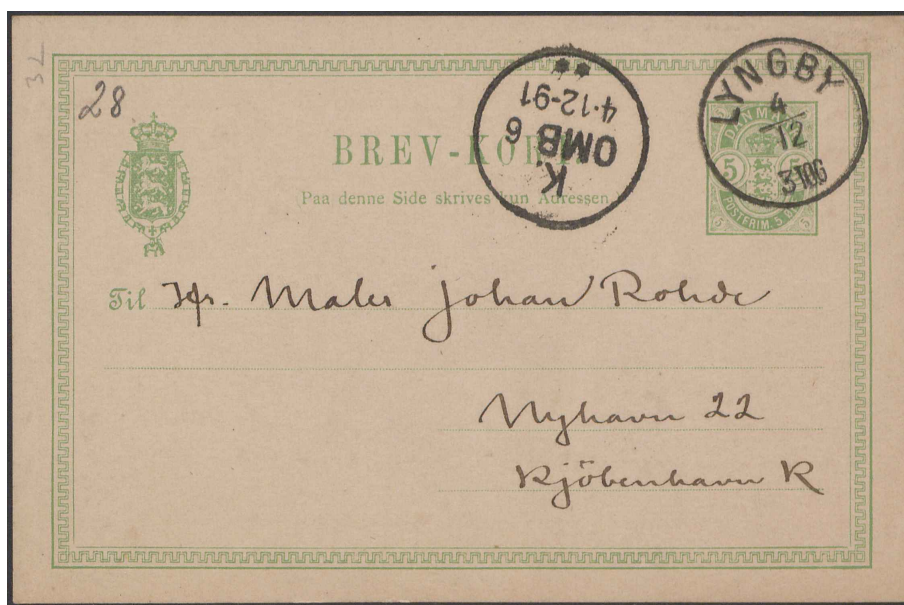 32
28
BREV-KORT
Paa denne Side skrives kun Adressen.
LYNGBY
4
12
3TOG
K.
OMB 6
4-12-91
DANMARK
5 5
POSTFRIM. 5 ØRE
5 5
Til Hr. Maler Johan Rohde
Nyhavn 22
Kjöbenhavn K